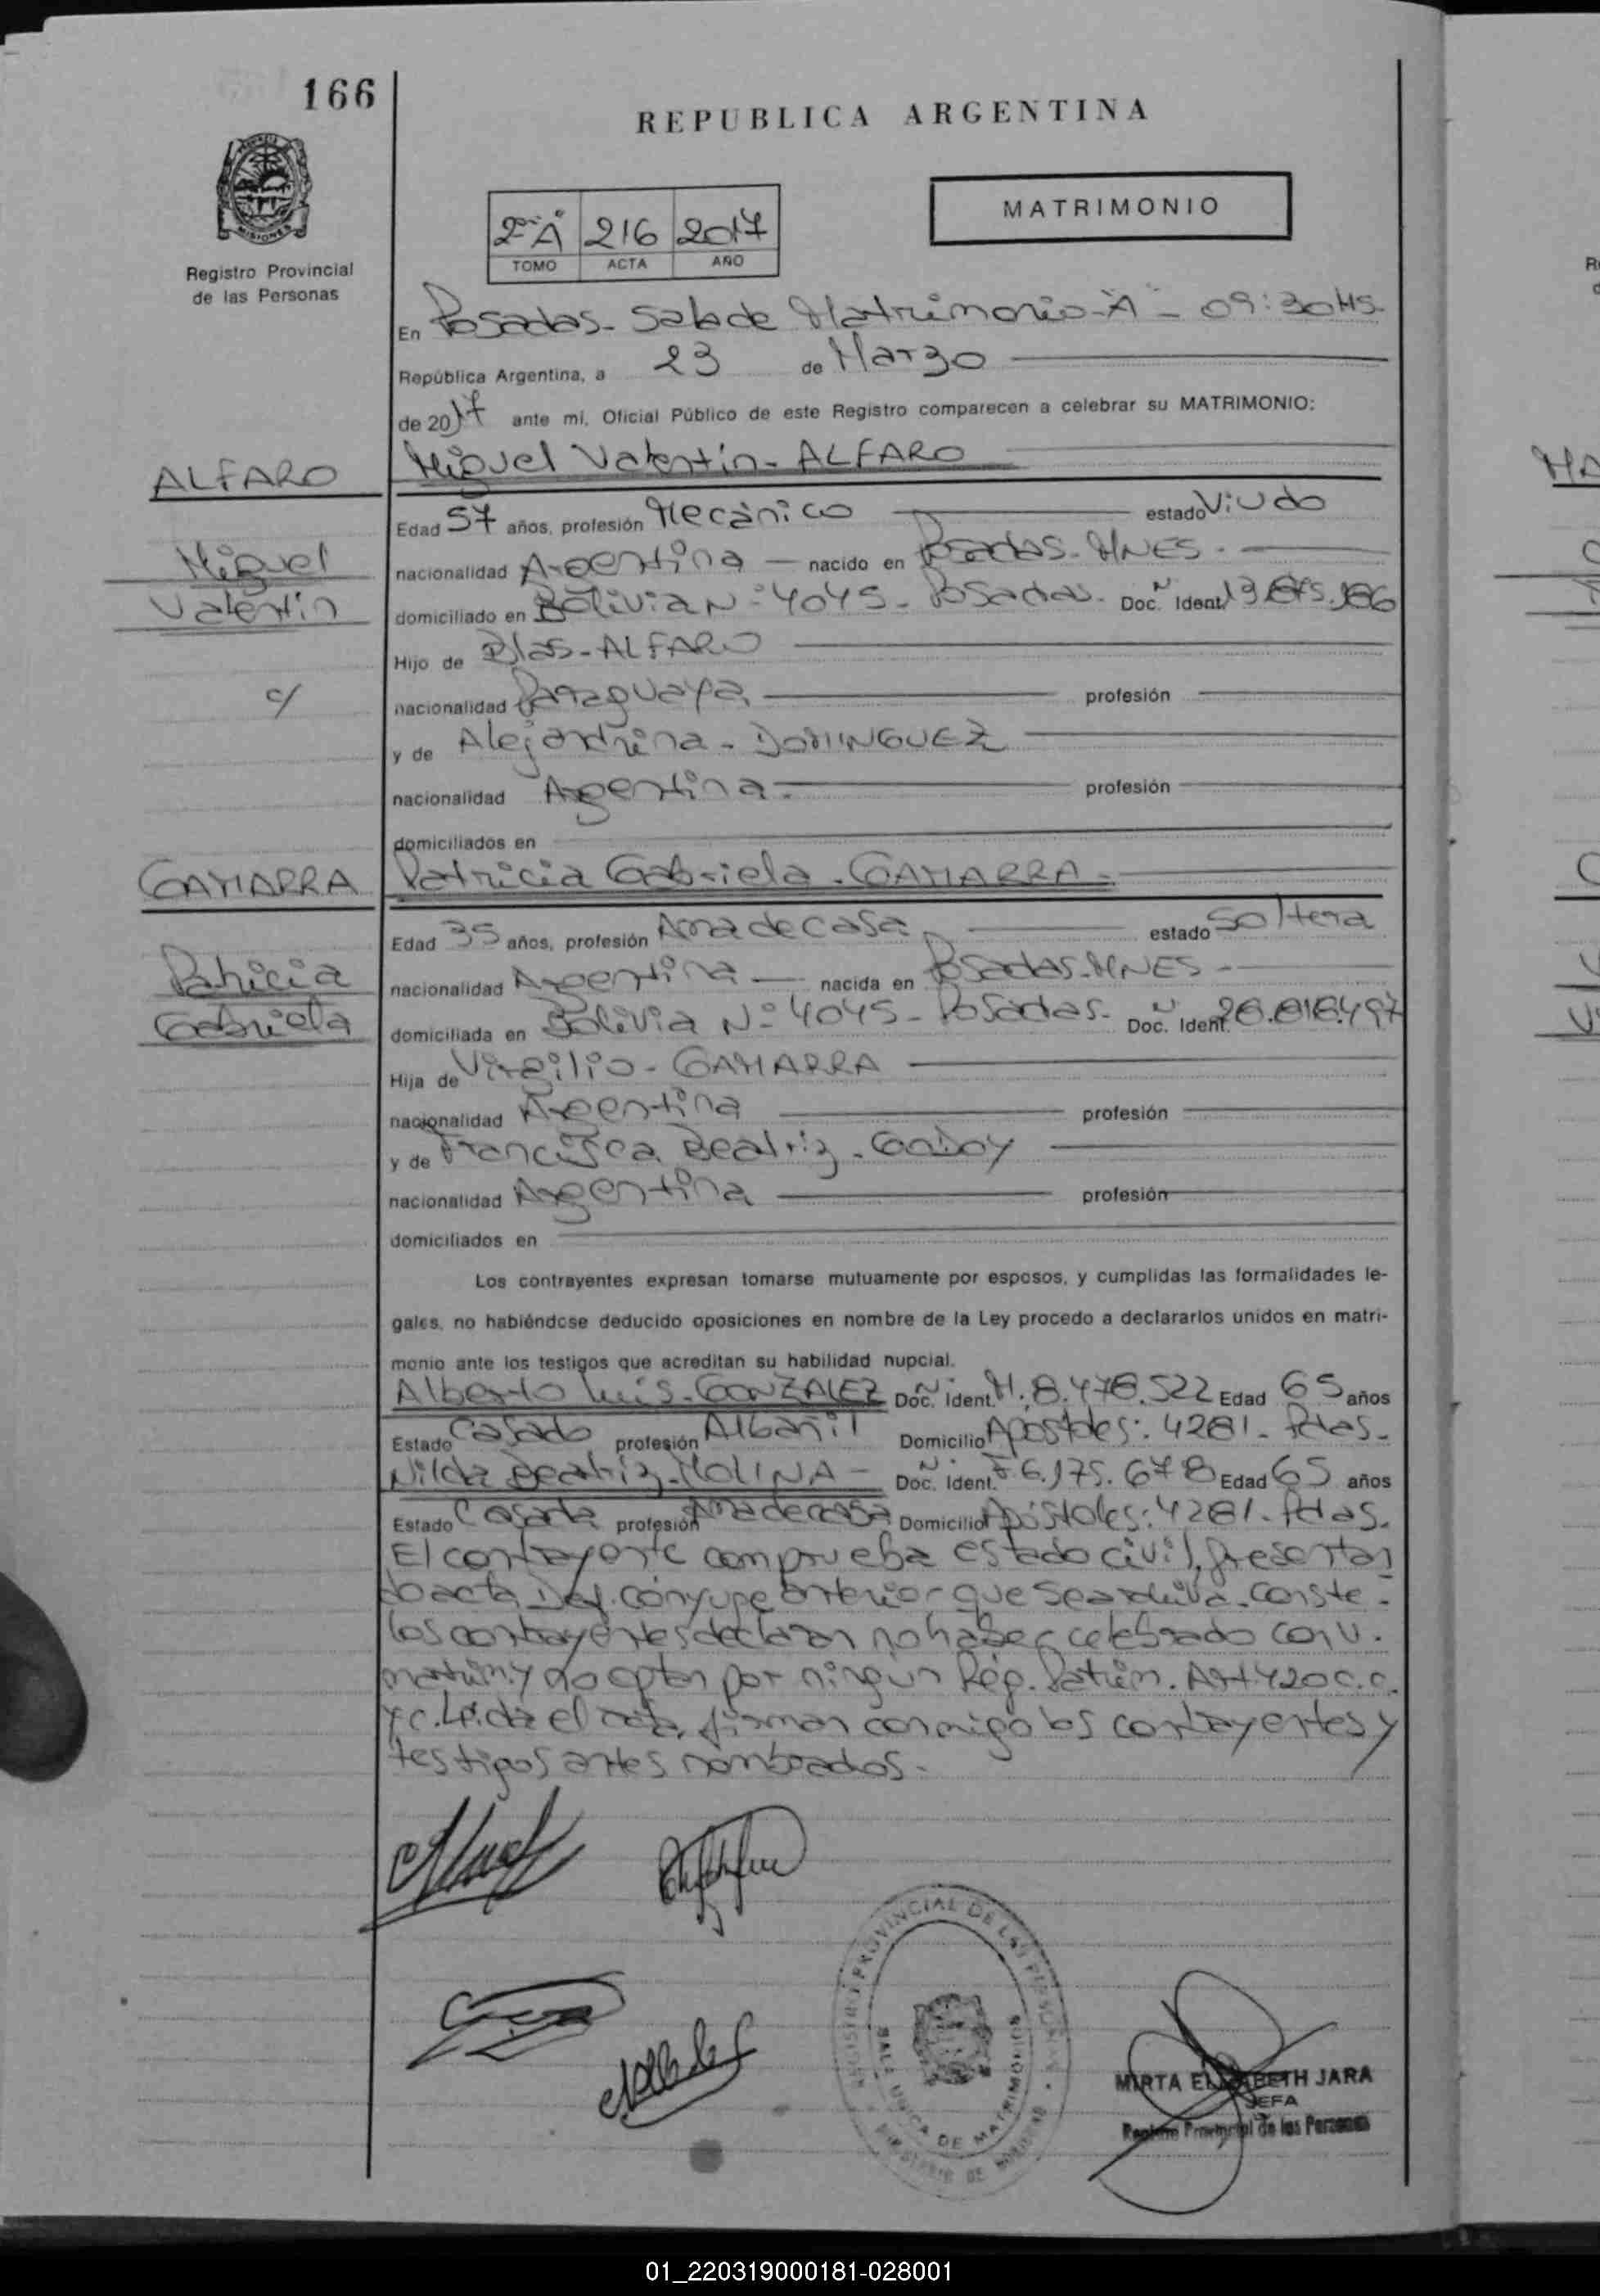 166
REPUBLICA ARGENTINA
MISIONES
Registro Provincial
de las Personas
2º A 216 2017
TOMO ACTA AÑO
MATRIMONIO
En Posadas - Sala de Matrimonio - "A" - 09:30 Hs.
República Argentina, a 23 de Marzo
de 2017 ante mí, Oficial Público de este Registro comparecen a celebrar su MATRIMONIO:
ALFARO
Miguel Valentin - ALFARO
Edad 57 años, profesión Mecánico estado Viudo
Miguel
nacionalidad Argentina nacido en Posadas - MNES.
Valentin
domiciliado en Bolivia Nº 4045 - Posadas. Doc. Ident.
Hijo de Blas - ALFARO
c/
nacionalidad Paraguaya profesión
y de Alejandrina - DOMINGUEZ
nacionalidad Argentina profesión
domiciliados en
GAMARRA
Patricia Gabriela - GAMARRA -
Edad 35 años, profesión Ama de casa estado Soltera
Patricia
nacionalidad Argentina nacida en Posadas - MNES -
Gabriela
domiciliada en Bolivia Nº 4045 - Posadas. Nº Doc. Ident.
Hija de Virgilio - GAMARRA
nacionalidad Argentina profesión
y de Francisca Beatriz - GODOY
nacionalidad Argentina profesión
domiciliados en
Los contrayentes expresan tomarse mutuamente por esposos, y cumplidas las formalidades le-
gales, no habiéndose deducido oposiciones en nombre de la Ley procedo a declararlos unidos en matri-
monio ante los testigos que acreditan su habilidad nupcial.
Alberto Luis - GONZALEZ Doc. Ident. M. 8.478.522 Edad 65 años
Estado Casado profesión Albañil Domicilio Apostoles: 4281 - Pdas.
Nilda Beatriz - MOLINA - Doc. Ident. F 6.175.678 Edad 65 años
Estado Casada profesión Ama de casa Domicilio Apóstoles: 4281 - Pdas.
El contrayente comprueba estado civil, presentan
do acta Def. cónyuge anterior que se archiva. Conste -
los contrayentes declaran no haber celebrado conv.
matrim. y no optan por ningún Rég. Patrim. Art. 420 C.C.
y C. Leída el acta, firman conmigo los contrayentes y
testigos antes nombrados.
REGISTRO PROVINCIAL DE LAS PERSONAS
SALA UNICA DE MATRIMONIOS
MIRTA ELIZABETH JARA
JEFA
Registro Provincial de las Personas
01_220319000181-028001